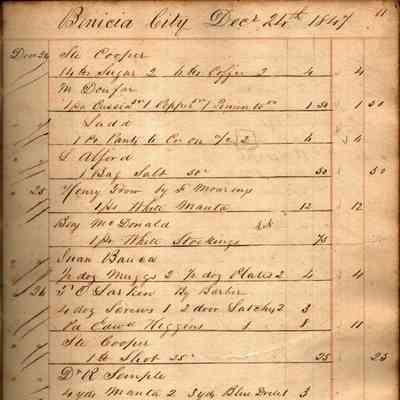 Benicia City Decr 24th 1847 11
Dec 24 Ste Cooper
14 lbs Sugar 2 4 lbs Coffee 2 4 4
M
1 pa Cassia 1 Pepper 1 50 1 50
Ladd
1 Pr Pants to Co on 2 4 4
L Alford
1 Bag Salt 50c 50 50
25 Henry Trow by F Moarings
1 ps White Manta 12 12
Benj McDonald
1 Pr White Stockings 75
Juan Bauca
½ doz Muggs 2 ½ doz Plates 2 4 4
26 T O Larkin By Barber
4 doz Screws 1 2 door Latchs 2 3
Pd Edwd Higgins 1 8 11
Ste Cooper
1 lb Shot 25c 25 25
Dr R Semple
4 yds Manta 2 3 yds Blue Drill 3